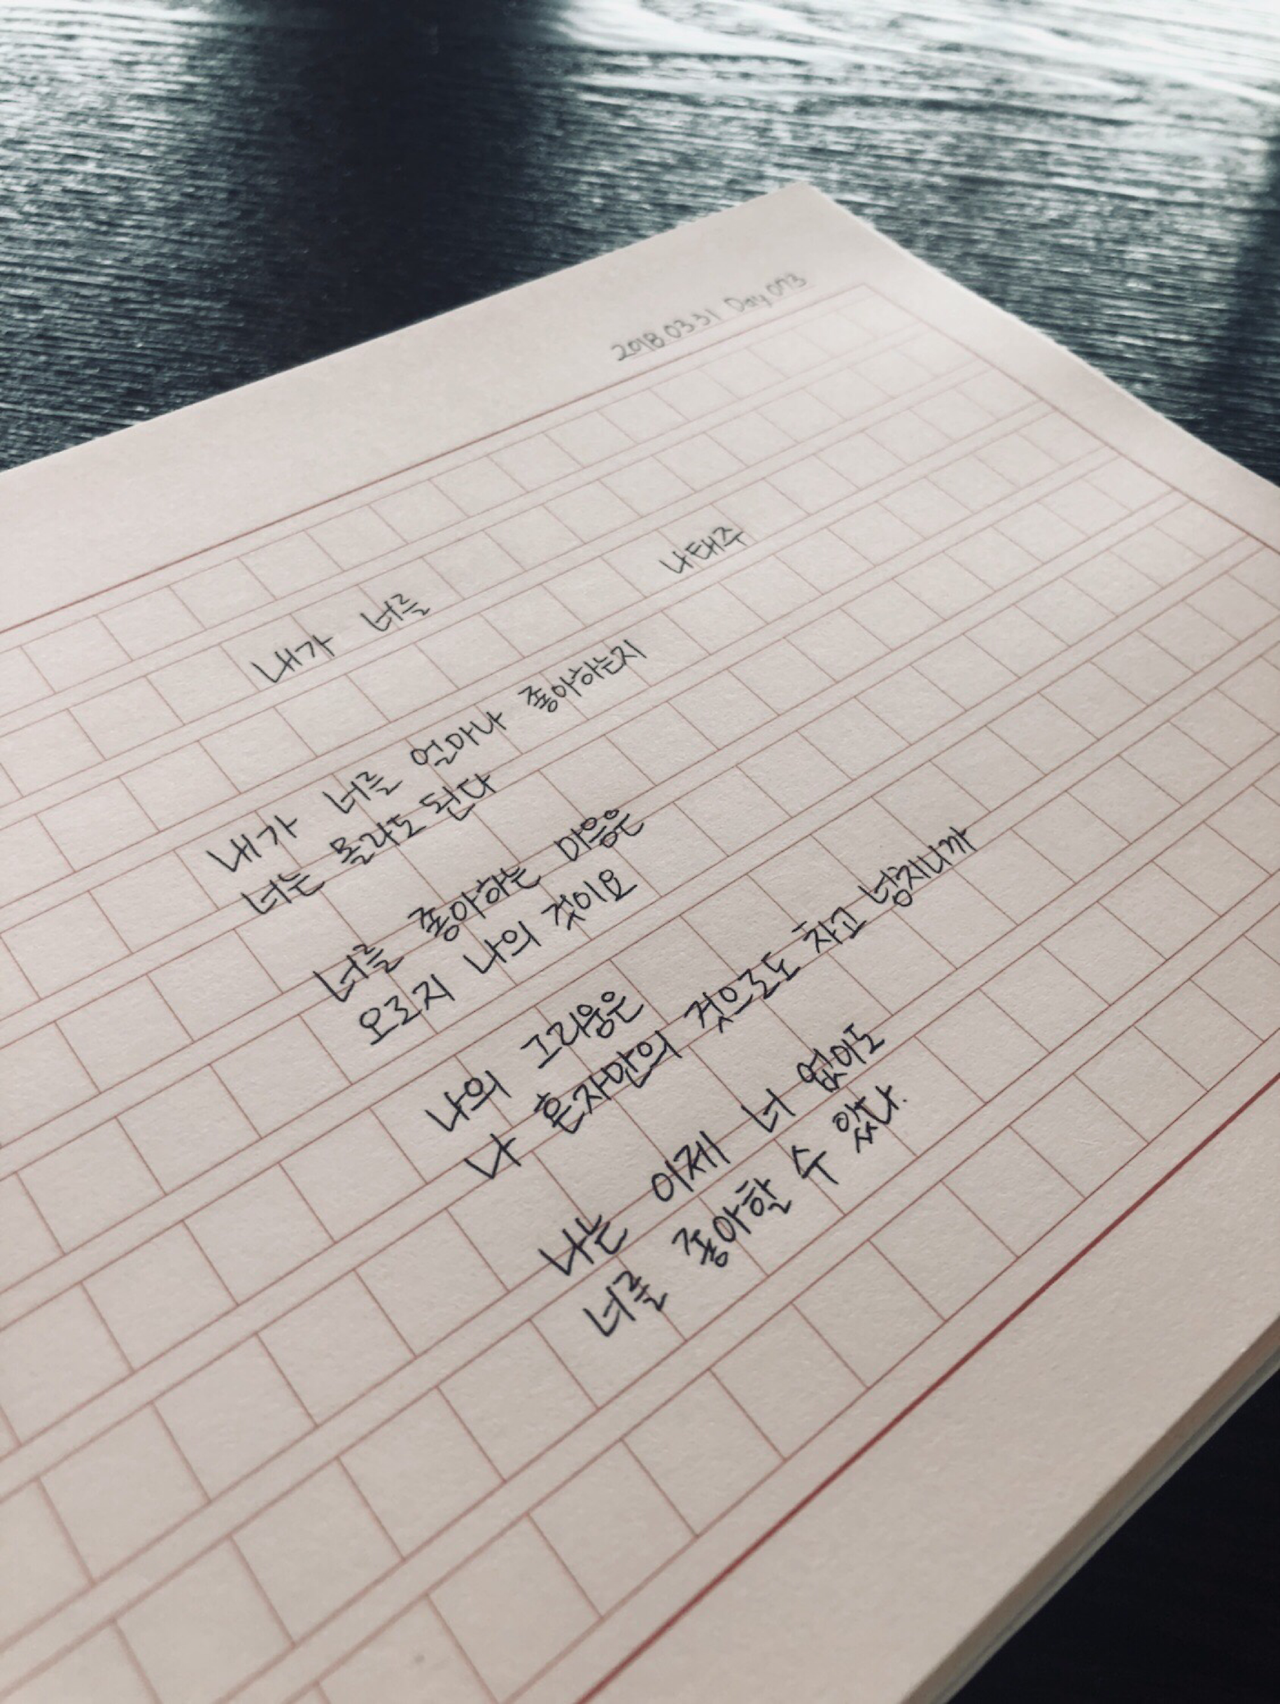 2018.03.31 Day.093
내가 너를
나태주
내가 너를 얼마나 좋아하는지
너는 몰라도 된다
너를 좋아하는 마음은
오로지 나의 것이요
나의 그리움은
나 혼자만의 것으로도 차고 넘치니까
나는 이제 너 없이도
너를 좋아할 수 있다.